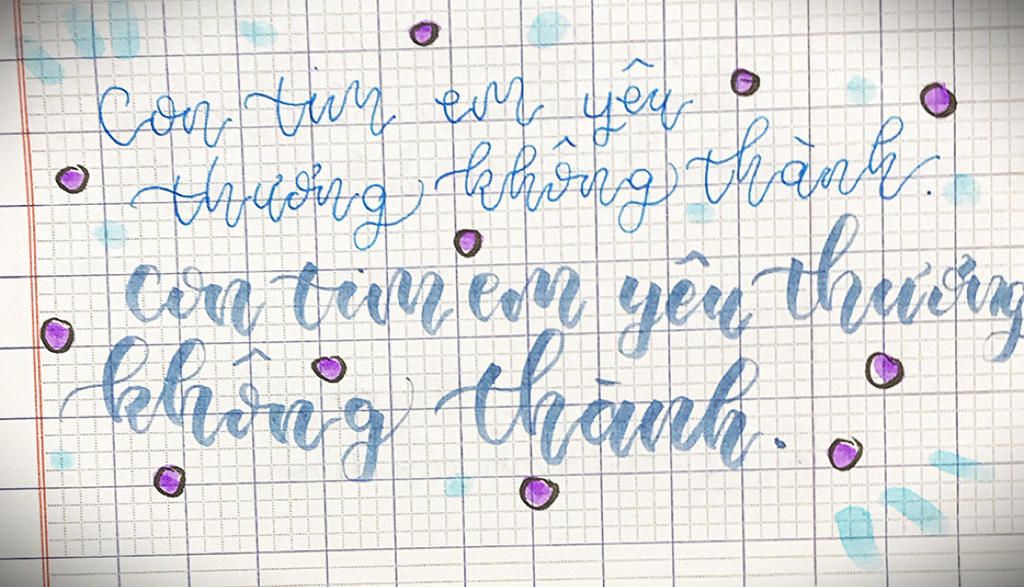 Con tim em yêu
thương không thành.
con tim em yêu thương
không thành.